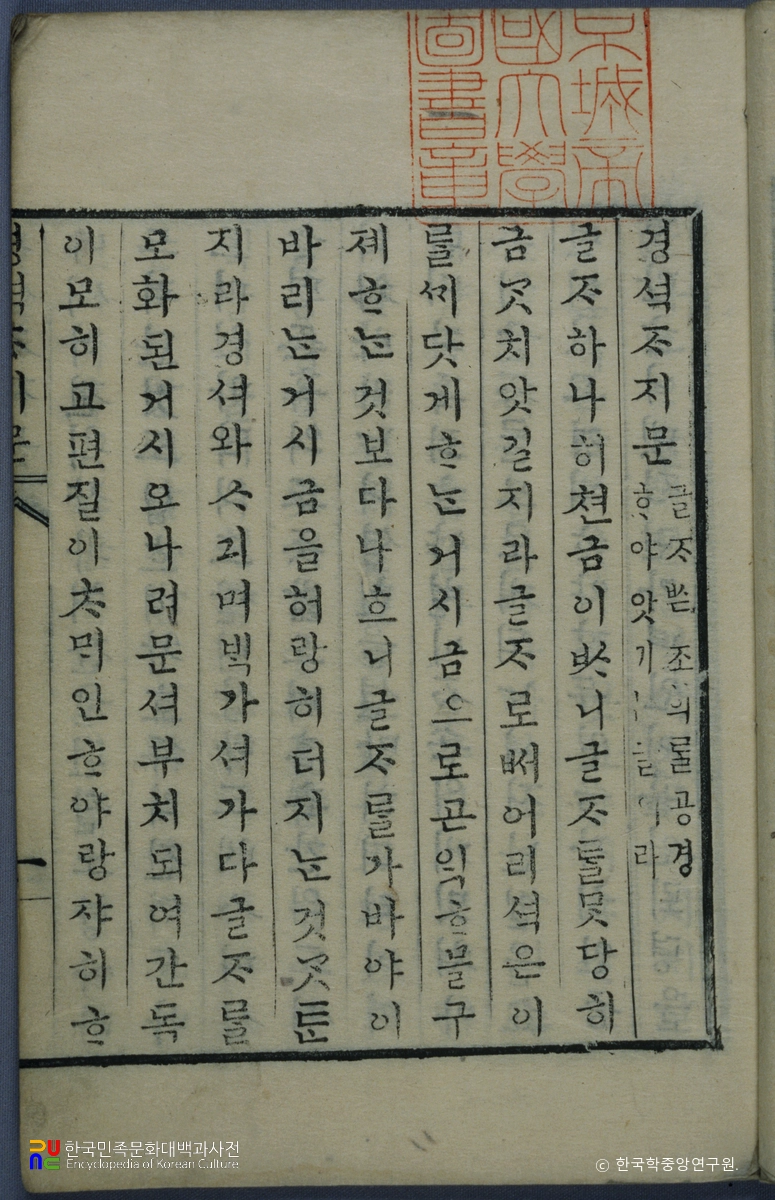 京城帝
國大學
圖書章
경석ᄌᆞ지문
글ᄌᆞᄡᅳᆫ조의ᄅᆞᆯ공경
ᄒᆞ야앗기ᄂᆞᆫ글이라
글ᄌᆞ하나히쳔금이ᄡᆞ니글ᄌᆞᄅᆞᆯᄆᆞᆺ당히
금ᄀᆞᆺ치앗길지라글ᄌᆞ로ᄡᅥ어리석은이
ᄅᆞᆯᄭᅦ닷게ᄒᆞᄂᆞᆫ거시금으로곤ᄋᆡᆨᄒᆞᄆᆞᆯ구
졔ᄒᆞᄂᆞᆫ것보다나흐니글ᄌᆞᄅᆞᆯ가바야이
바리ᄂᆞᆫ거시금을허랑히더지ᄂᆞᆫ것ᄀᆞᆺᄐᆞᆫ
지라경셔와ᄉᆞ긔며ᄇᆡᆨ가셔가다글ᄌᆞᄅᆞᆯ
모화된거시오나려문셔부치되여간독
이모히고편질이ᄎᆞᄆᆡ인ᄒᆞ야랑쟈히ᄒᆞ
경석ᄌᆞ지문
一
한국민족문화대백과사전
Encyclopedia of Korean Culture
© 한국학중앙연구원.